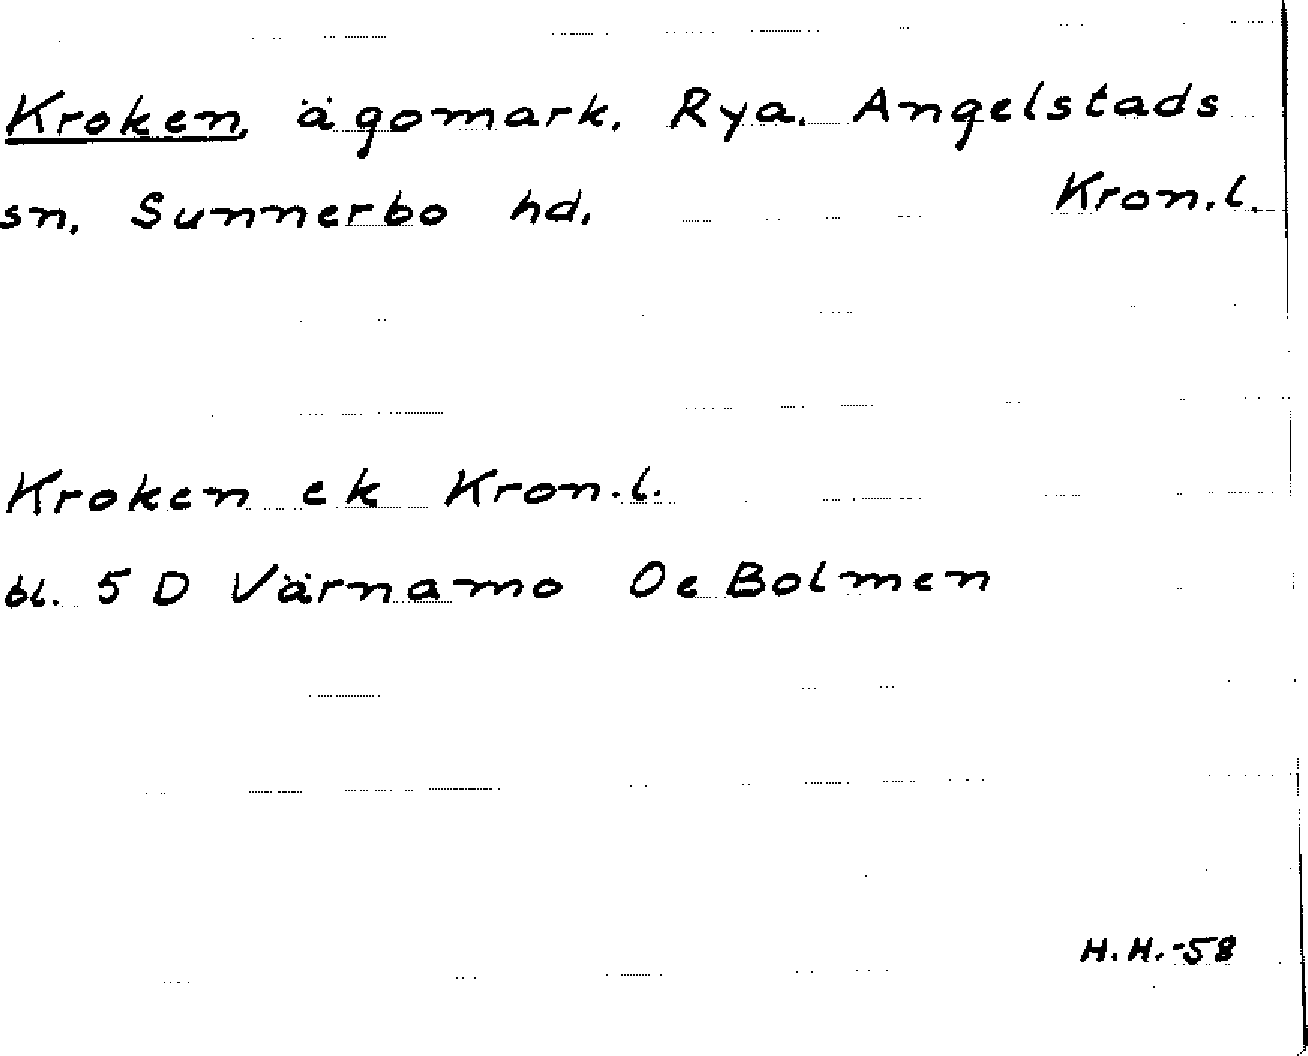 Kroken, ägomark, Rya. Angelstads
sn, Sunnerbo hd. Kron.l.
Kroken ek Kron.l.
bl. 5 D Värnamo Oe Bolmen
H.H.-58